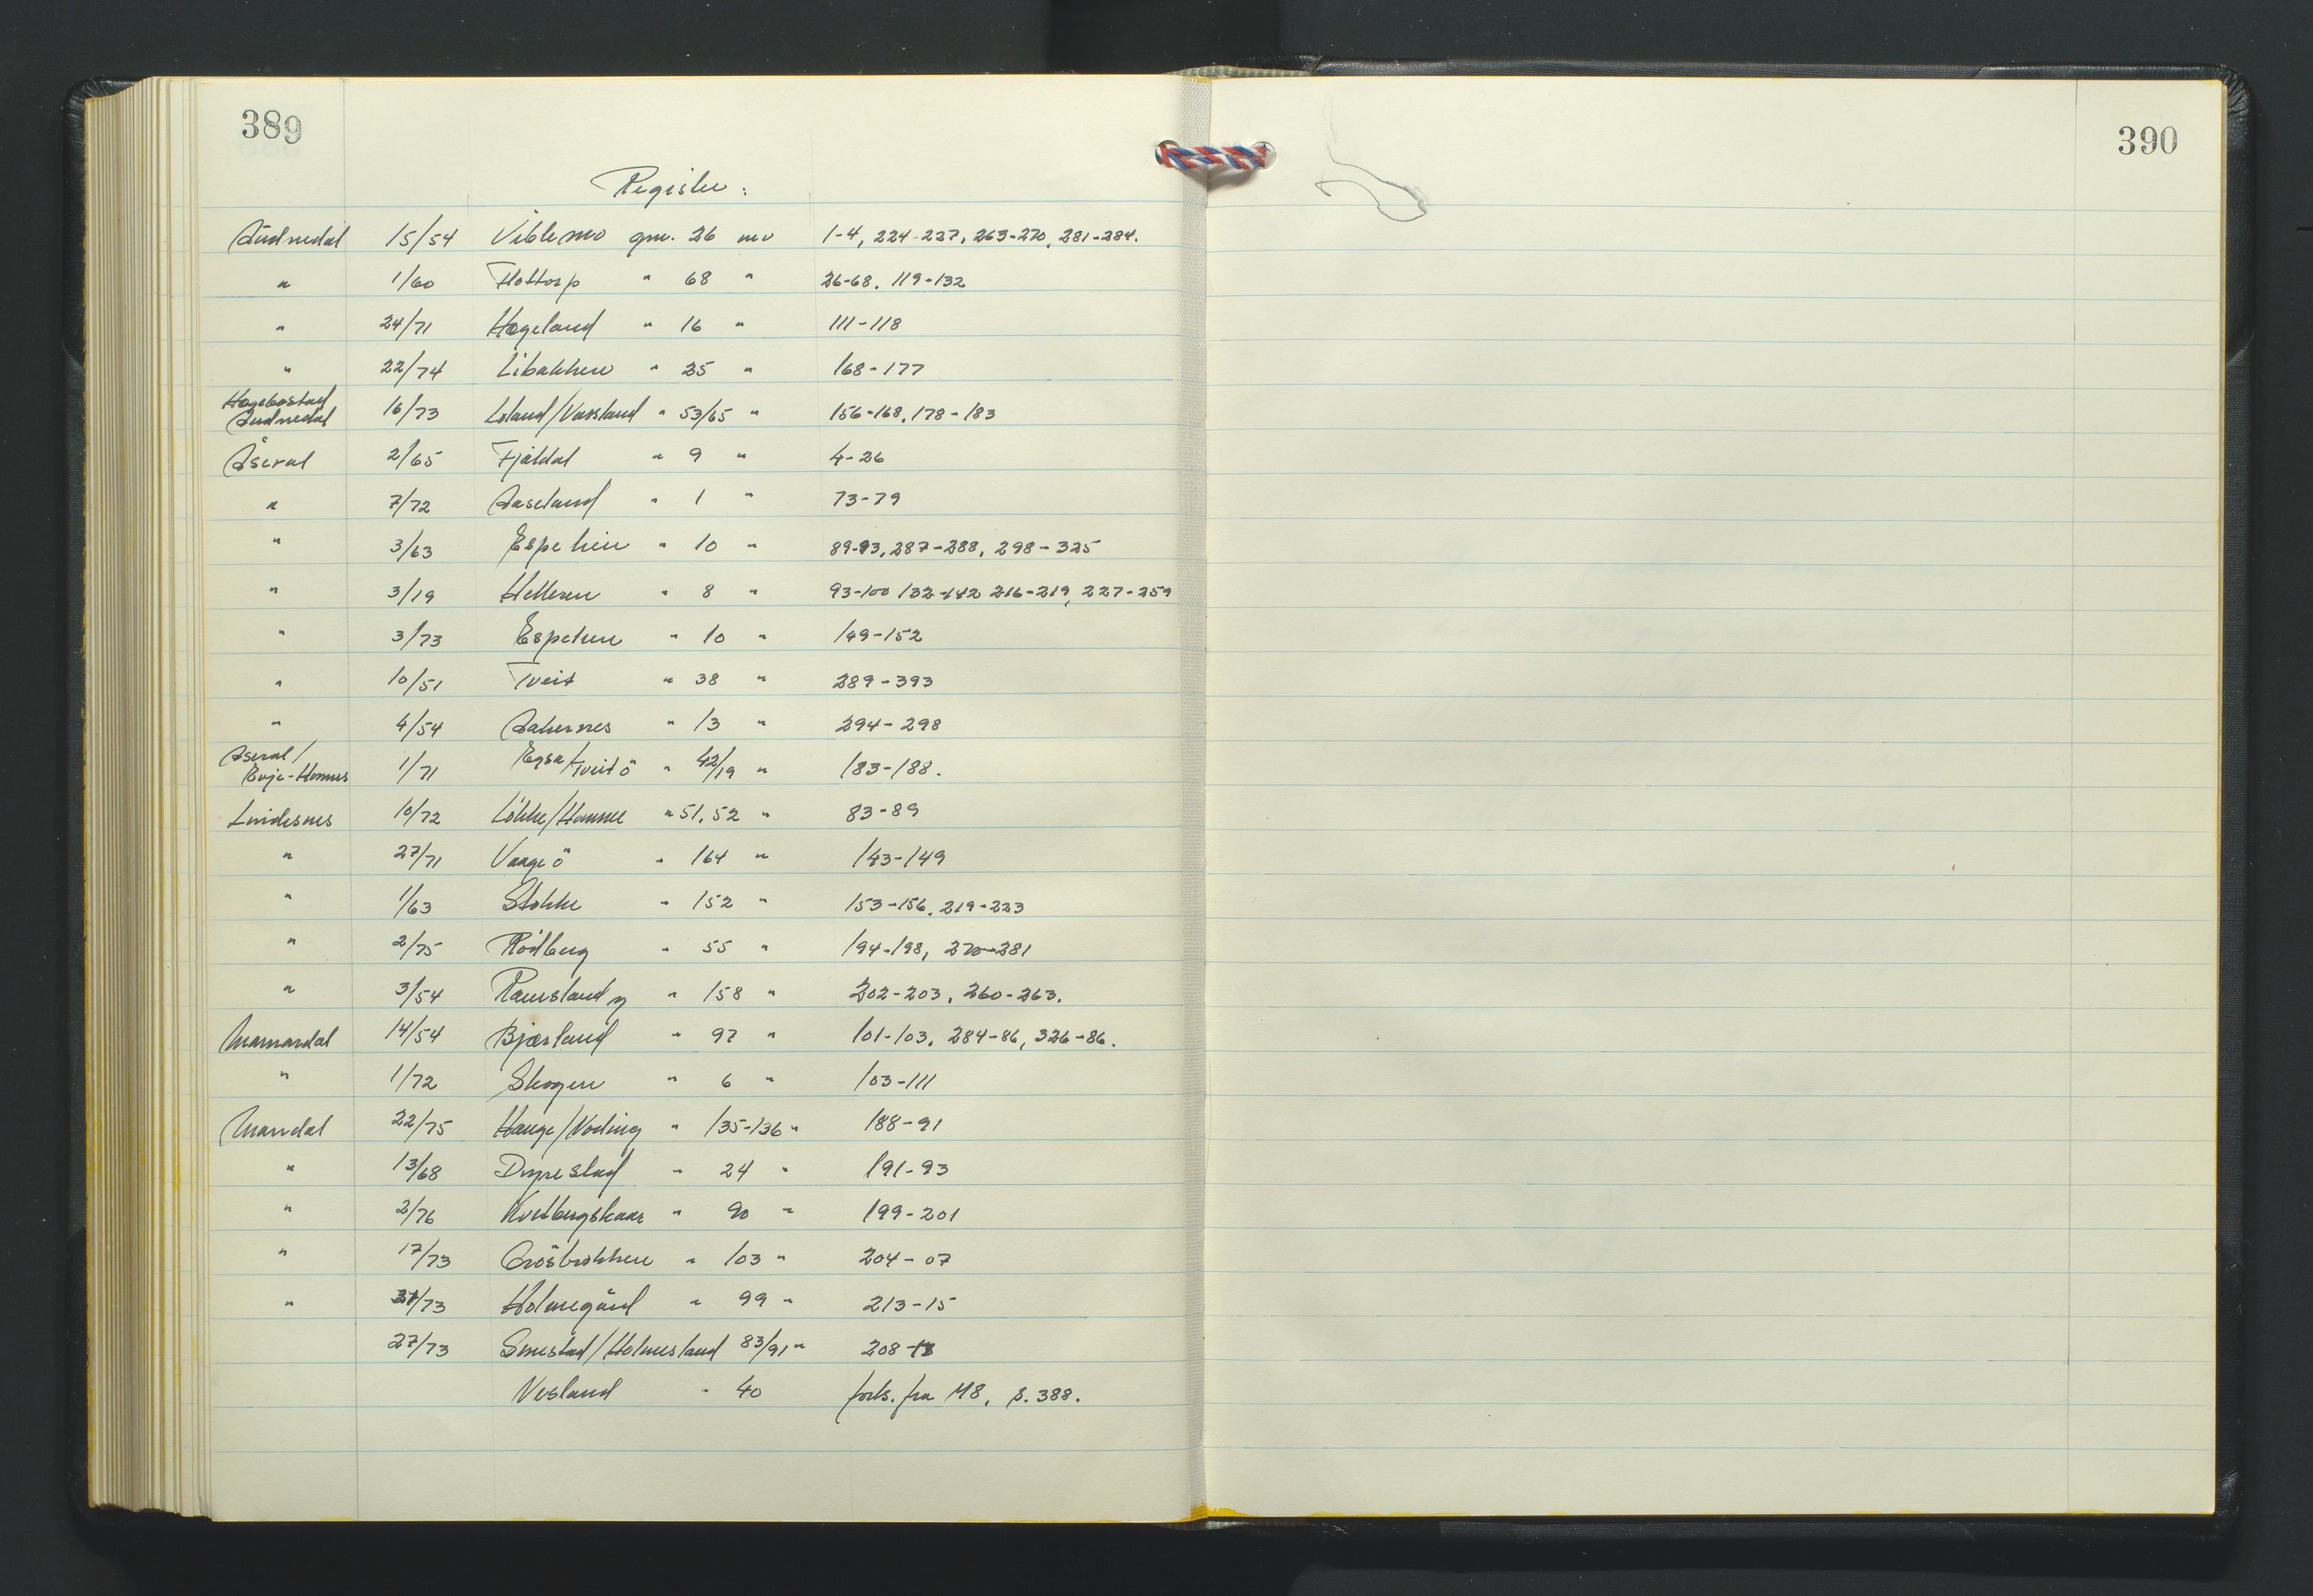 389
Register:
Audnedal 15/54 Viblemo gnr. 26 mv 1-4, 224-227, 263-270, 281-284.
" 1/60 Flottorp " 68 " 26-68, 119-132
" 24/71 Hageland " 16 " 111-118
" 22/74 Libakken " 25 " 168-177
Hægebostad
Audnedal 16/73 Loland/Vaasland " 53/65 " 156-168, 178-183
Åseral 2/65 Fjäldal " 9 " 4-26
" 7/72 Aaseland " 1 " 73-79
" 3/63 Espelien " 10 " 89-93, 287-288, 298-325
" 3/19 Helleren " 8 " 93-100 132-142 216-219, 227-259
" 3/73 Espelien " 10 " 149-152
" 10/51 Tveit " 38 " 289-393
" 4/54 Aakernes " 13 " 294-298
Åseral/
Evje-Hornnes 1/71 Eqså/Tveit ö " 42/19 " 183-188.
Lindesnes 10/72 Lökke/Homme " 51, 52 " 83-89
" 27/71 Vaage ö " 164 " 143-149
" 1/63 Stokke " 152 " 153-156, 219-223
" 2/75 Rödberg " 55 " 194-198, 270-281
" 3/54 Ramsland y " 158 " 202-203, 260-263.
Marnardal 14/54 Bjærland " 97 " 101-103, 284-86, 326-86.
" 1/72 Skogen " 6 " 103-111
Mandal 22/75 Hauge/Noding " 135-136 " 188-91
" 13/68 Dyrestad " 24 " 191-93
" 2/76 Kvitbergskaar " 90 " 199-201
" 17/73 Grösbrokken " 103 " 204-07
" 31/73 Holmegård " 99 " 213-15
27/73 Smestad/Holmesland 83/91 " 208-13
Vesland " 40 forts. fra M8, s. 388.
390